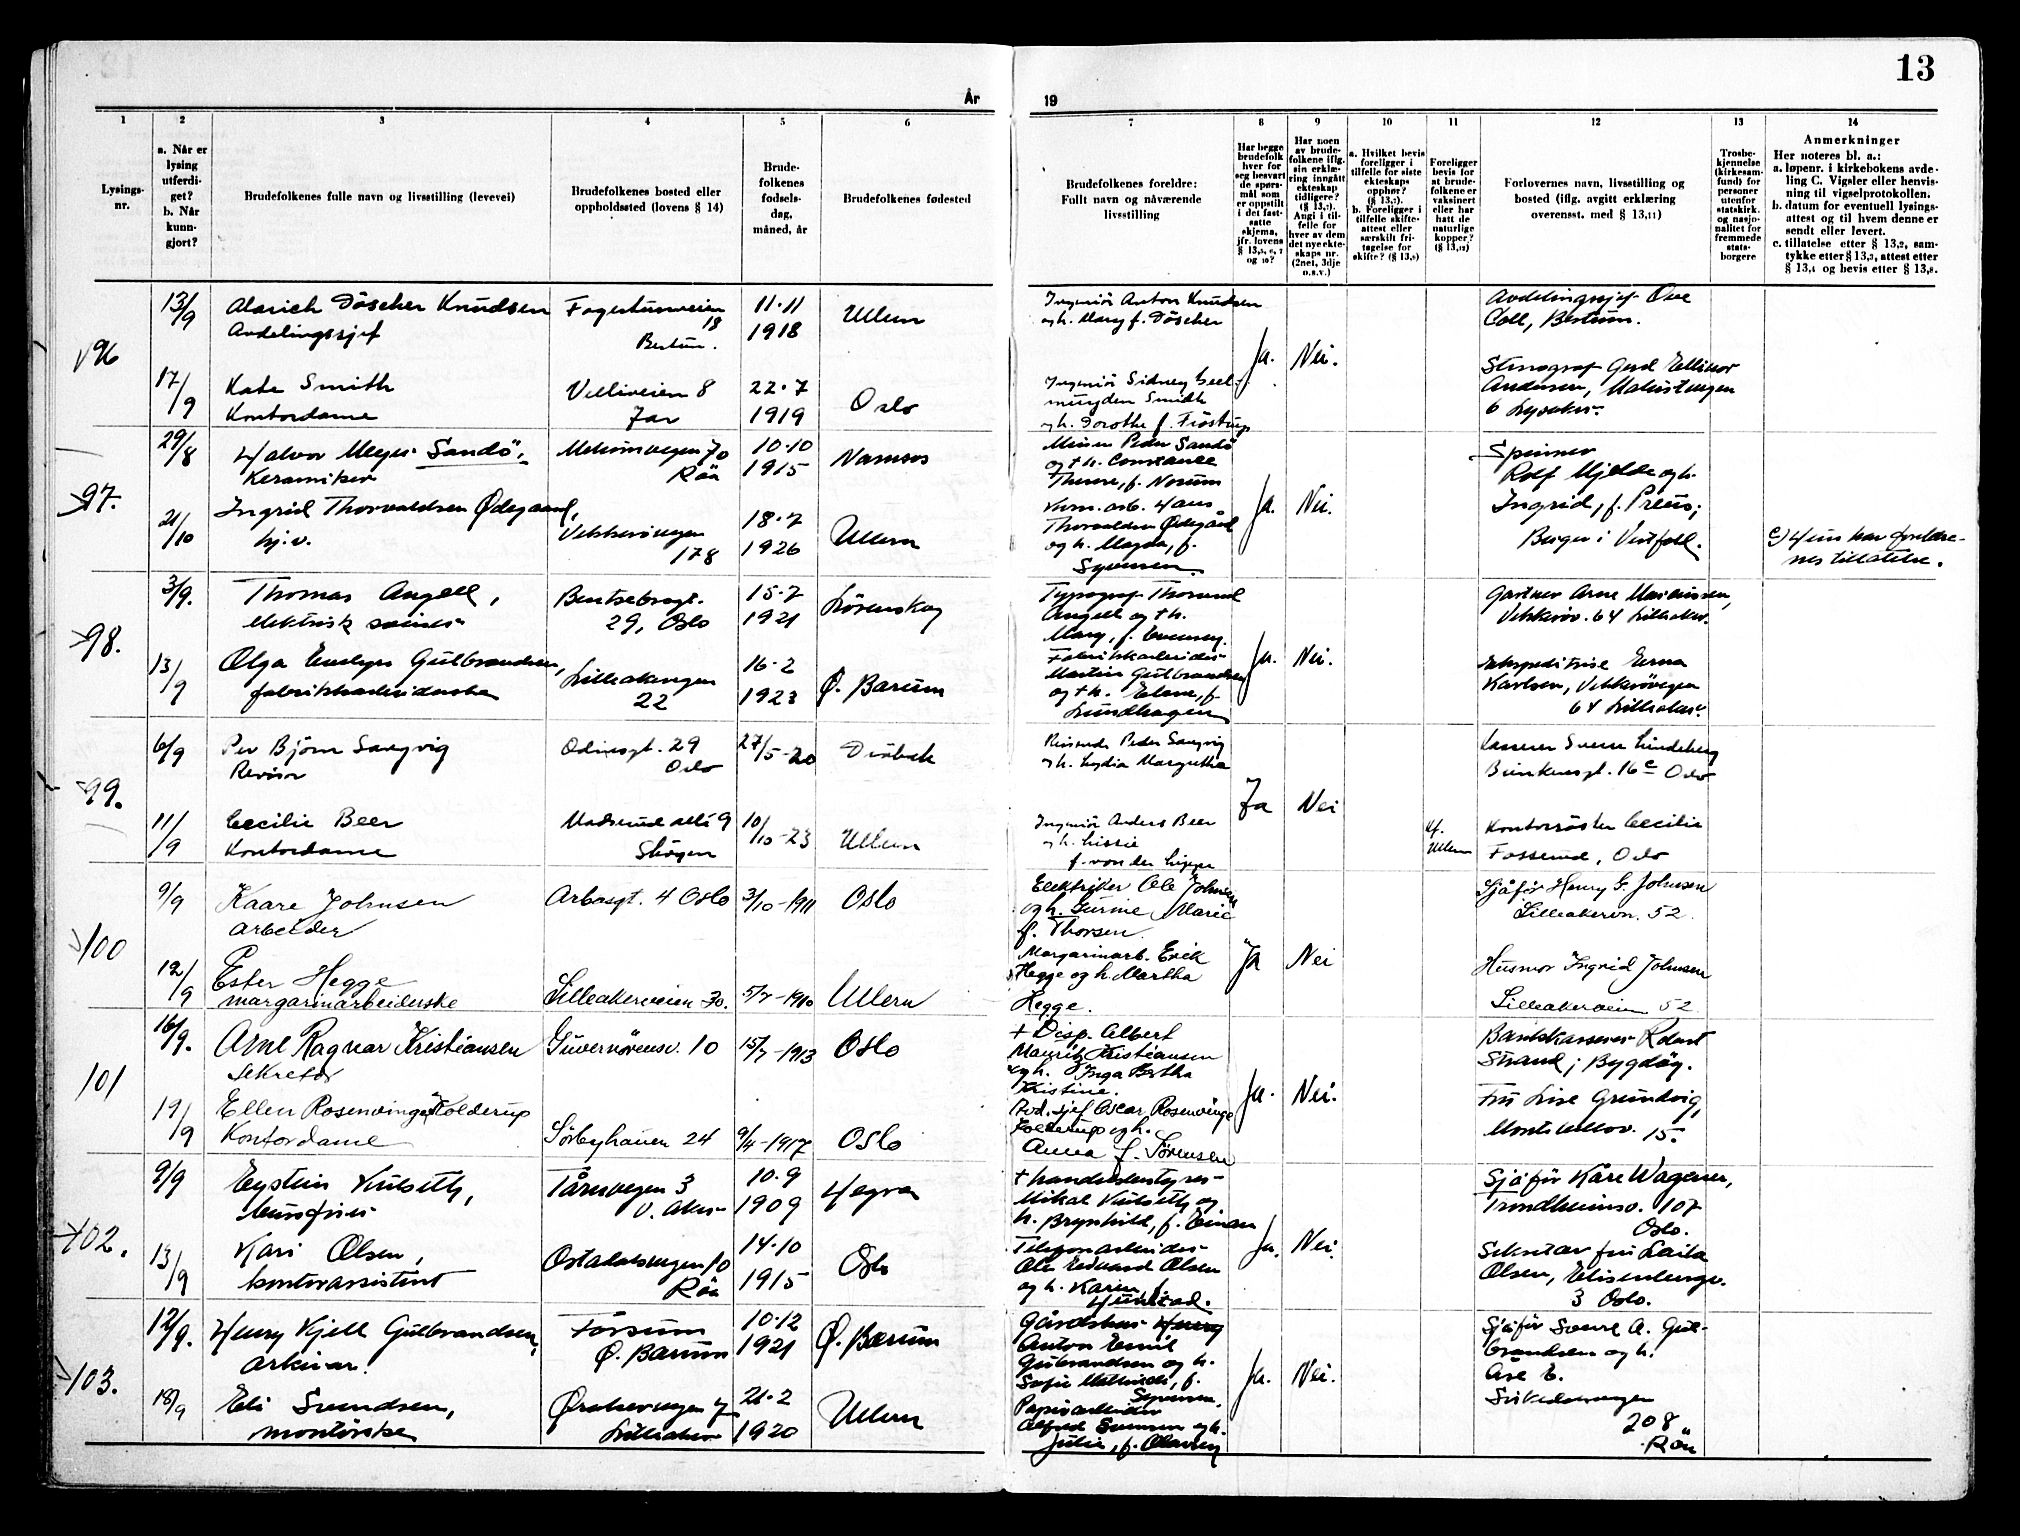 13
År
19
1
2
3
4
5
6
7
8
9
10
11
12
13
14
Lysings-
nr.
a. Når er
lysing
utferdi-
get?
b. Når
kunn-
gjort?
Brudefolkenes fulle navn og livsstilling (levevei)
Brudefolkenes bosted eller
oppholdssted (lovens § 14)
Brude-
folkenes
fødsels-
dag,
måned, år
Brudefolkenes fødested
Brudefolkenes foreldre:
Fullt navn og nåværende
livsstilling
Har begge
brudefolk
hver for
seg besvart
de spørs-
mål som
er oppstilt
i det fast-
satte
skjema,
jfr. lovens
§ 13,5, 6, 7
og 10?
Har noen
av brude-
folkene iflg.
sin erklæ-
ring inngått
ekteskap
tidligere?
(§ 13,7).
Angi i til-
felle for
hver av dem
det nye ekte-
skaps nr.
(2net, 3dje
o.s.v.)
a. Hvilket bevis
foreligger i
tilfelle for siste
ekteskaps
opphør?
(§ 13,7).
b. Foreligger i
tilfelle skifte-
attest eller
særskilt fri-
tagelse for
skifte? (§ 13,9)
Foreligger
bevis for
at brude-
folkene er
vaksinert
eller har
hatt de
naturlige
kopper?
(§ 13,12)
Forlovernes navn, livsstilling og
bosted (iflg. avgitt erklæring
overensst. med § 13,11)
Trosbe-
kjennelse
(kirkesam-
fund) for
personer
utenfor
statskirk.
og nasjo-
nalitet for
fremmede
stats-
borgere
Anmerkninger
Her noteres bl. a.:
a. løpenr. i kirkebokens avde-
ling C. Vigsler eller henvis-
ning til vigselprotokollen.
b. datum for eventuell lysings-
attest og til hvem denne er
sendt eller levert.
c. tillatelse etter § 13,2, sam-
tykke etter § 13,3, attest etter
§ 13,4 og bevis etter § 13,8.
96
13/9
Alarich Döscher Knudsen
Avdelingssjef
Fagertunveien
18
Bestum.
11.11
1918
Ullern
Ingeniör Anton Knudsen
og h. Mary f. Döscher
Ja.
Nei.
Avdelingssjef Ove
Coll, Bestum.
17/9
Kate Smith
Kontordame
Velliveien 8
Jar
22.7
1919
Oslo
Ingeniör Sidney
Smith
og h. Dorothe f. Fröstrup
Stenograf Gerd Ellinor
Andersen,
6 Lysaker.
97.
29/8
Halvor Meyer Sandö,
Keramiker
70
Röa
10.10
1915
Namsos
Peder Sandö
og + h. Constance
Therese, f. Norum
Ja.
Nei.
Spinner
Rolf Mjelde og h.
Ingrid, f. Preus;
Berger i Vestfold.
21/10
Ingrid Thorvaldsen Ødegaard,
hj.v.
Vekkerövegen
178
18.7
1926
Ullern
Kom. arb. Hans
Thorvaldsen Ødegård
og h. Magda, f.
Syversen.
c) Hun har foreldre-
nes tillatelse.
98.
3/9.
Thomas Angell,
elektrisk sveiser
Bentsebrogt.
29, Oslo
15.7
1921
Lörenskog
Typograf Thorvald
Angell og + h.
Mary, f. Evensen.
Ja.
Nei.
Gartner Arne Martinsen,
Vekkeröv. 64 Lilleaker.
13/9
Olga Evelyn Gulbrandsen,
fabrikkarbeiderske
Lilleakervegen
22
16.2
1923
Ø. Bærum
Fabrikkarbeider
Martin Gulbrandsen
og + h. Elene, f.
Lundhagen
Ekspeditrise Erna
Karlsen, Vekkerövegen
64 Lilleaker.
99.
6/9
Per Björn Sangvig
Revisor
Odinsgt. 29
Oslo
27/5-20
Dröbak
Reisende Peder Sangvig
og h. Lydia Margretha
Ja
Nei
Kasserer Svein Lindeberg
16c Oslo
11/9
Cecilie Beer
Kontordame
Madserud allé 9
Sköyen
10/10-23
Ullern
Ingeniör Anders Beer
og h. Lissie
f. von der Lippe
Kf.
Ullern
Kontorsöster Cecilie
Fosserud, Oslo
100
9/9
Kaare Johnsen
Arbeider
Arbosgt. 4 Oslo
3/10-1911
Oslo
Elektriker Ole Johnsen
og h. Gurine Marie
f. Thorsen.
Ja
Nei
Sjåför Henry G. Johnsen
Lilleakervn. 52.
12/9
Ester Hegge
margarinarbeiderske
Lilleakerveien 30.
5/7-1910
Ullern
Margarinarb. Erik
Hegge og h. Martha
Hegge.
Husmor Ingrid Johnsen
Lilleakerveien 52
101
16/9.
Arne Ragnar Kristiansen
Sekretær
Guvernörensv. 10
15/7-1913
Oslo
+ Disp. Albert
Mauritz Kristiansen
og h. Inga Bertha
Kristine.
Ja.
Nei.
Bankkasserer Robert
Strand, Bygdöy.
19/9
Ellen Rosenvinge Kolderup
Kontordame
Sörbyhauen 24
9/4-1917
Oslo
Avd.sjef Oscar Rosenvinge
Kolderup og h.
Anna f. Sørensen
Fru Lise Grundvig,
15.
102.
9/9
Eystein Kulseth,
bussjåför
Tårnvegen 3
V. Aker
10.9
1909
Hegra
+ handelsbestyrer
Mikal Kulseth og
h. Brynhild, f. Einan
Ja.
Nei.
Sjåför Kåre Wagener,
Trondheimsv. 107
Oslo.
13/9
Kari Olsen,
kontorassistent
Ostadalsvegen 10
Röa
14.10
1915
Oslo
Telefonarbeider
Ole Edvard Olsen
og h. Karen f.
Hunstad.
Sekretær fru Laila
Olsen, Elisenbergv.
3 Oslo.
103.
12/9.
Henry Kjell Gulbrandsen,
arkivar.
Fossum
Ø. Bærum
10.12
1921
Ø. Bærum
Anton Emil
Gulbrandsen og h.
Sofie Mathilde, f.
Syversen.
Ja.
Nei.
Sjåför Sverre A. Gul-
brandsen og h.
Åse E.
Sörkedalsvegen
208
Röa
18/9
Eli Svendsen,
montörske
Ørakervegen 7
Lilleaker
21.2
1920
Ullern
Papirarbeider
Alfred Svensen og h.
Julie, f. Olavsen